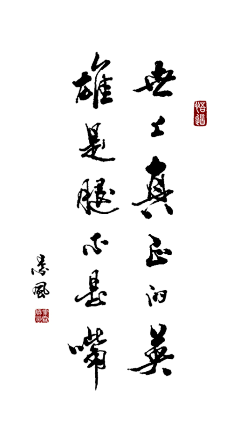 世上真正的英
雄是腿不是嘴
墨风